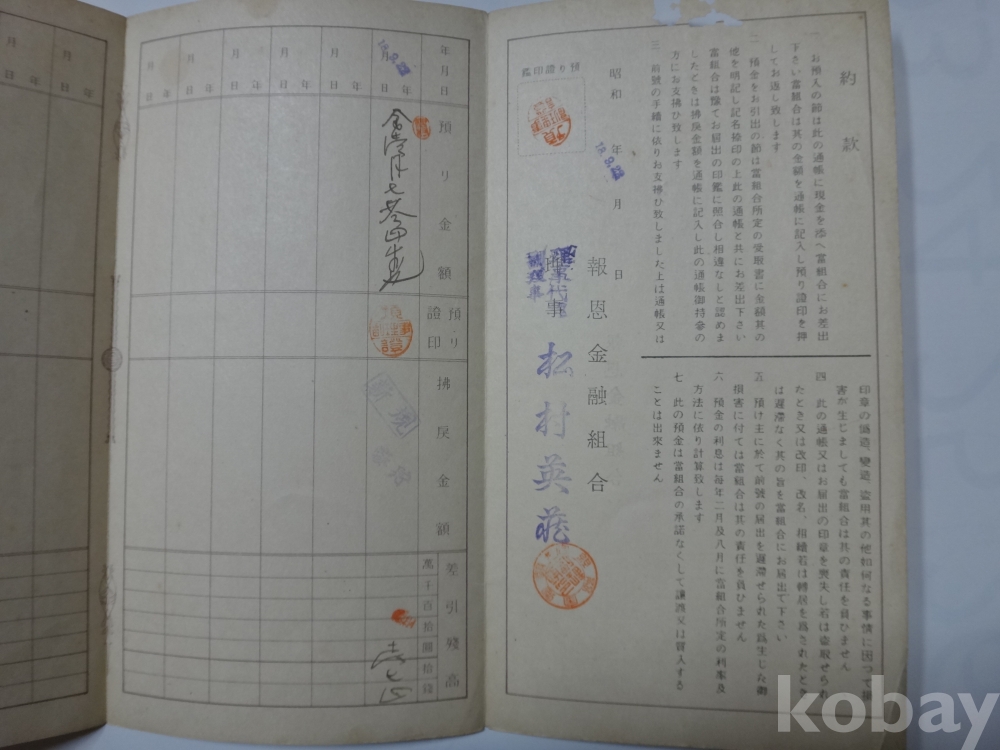 約款
一 お預入の節は此の通帳に現金を添へ當組合にお差出
下さい當組合は其の金額を通帳に記入し預り證印を押
してお返し致します
二 預金をお引出の節は當組合所定の受取書に金額其の
他を明記し記名捺印の上此の通帳と共にお差出下さい
當組合は豫てお届出の印鑑に照合し相違なしと認めま
したときは拂戻金額を通帳に記入し此の通帳御持參の
方にお支拂ひ致します
三 前號の手續に依りお支拂ひ致しました上は通帳又は
印章の偽造、變造、盜用其の他如何なる事情に因つて損
害が生じましても當組合は其の責任を負ひません
四 此の通帳又はお届出の印章を喪失し若は盜取せられ
たとき又は改印、改名、相續若は轉居を爲されたとき
は遲滯なく其の旨を當組合にお届出で下さい
五 預け主に於て前號の届出を遲滯せられた爲生じた御
損害に付ては當組合は其の責任を負ひません
六 預金の利息は毎年二月及八月に當組合所定の利率及
方法に依り計算致します
七 此の預金は當組合の承諾なくして讓渡又は質入する
ことは出來ません
預り證印鑑
昭和 年 月 日
18.9.
報恩金融組合
理事
松村英
年月日
預り金額
預り證印
拂戻金額
差引殘高
萬千百拾圓拾錢
年 月 日
年 月 日
年 月 日
年 月 日
年 月 日
年 月 日
18.9.
新規
kobay